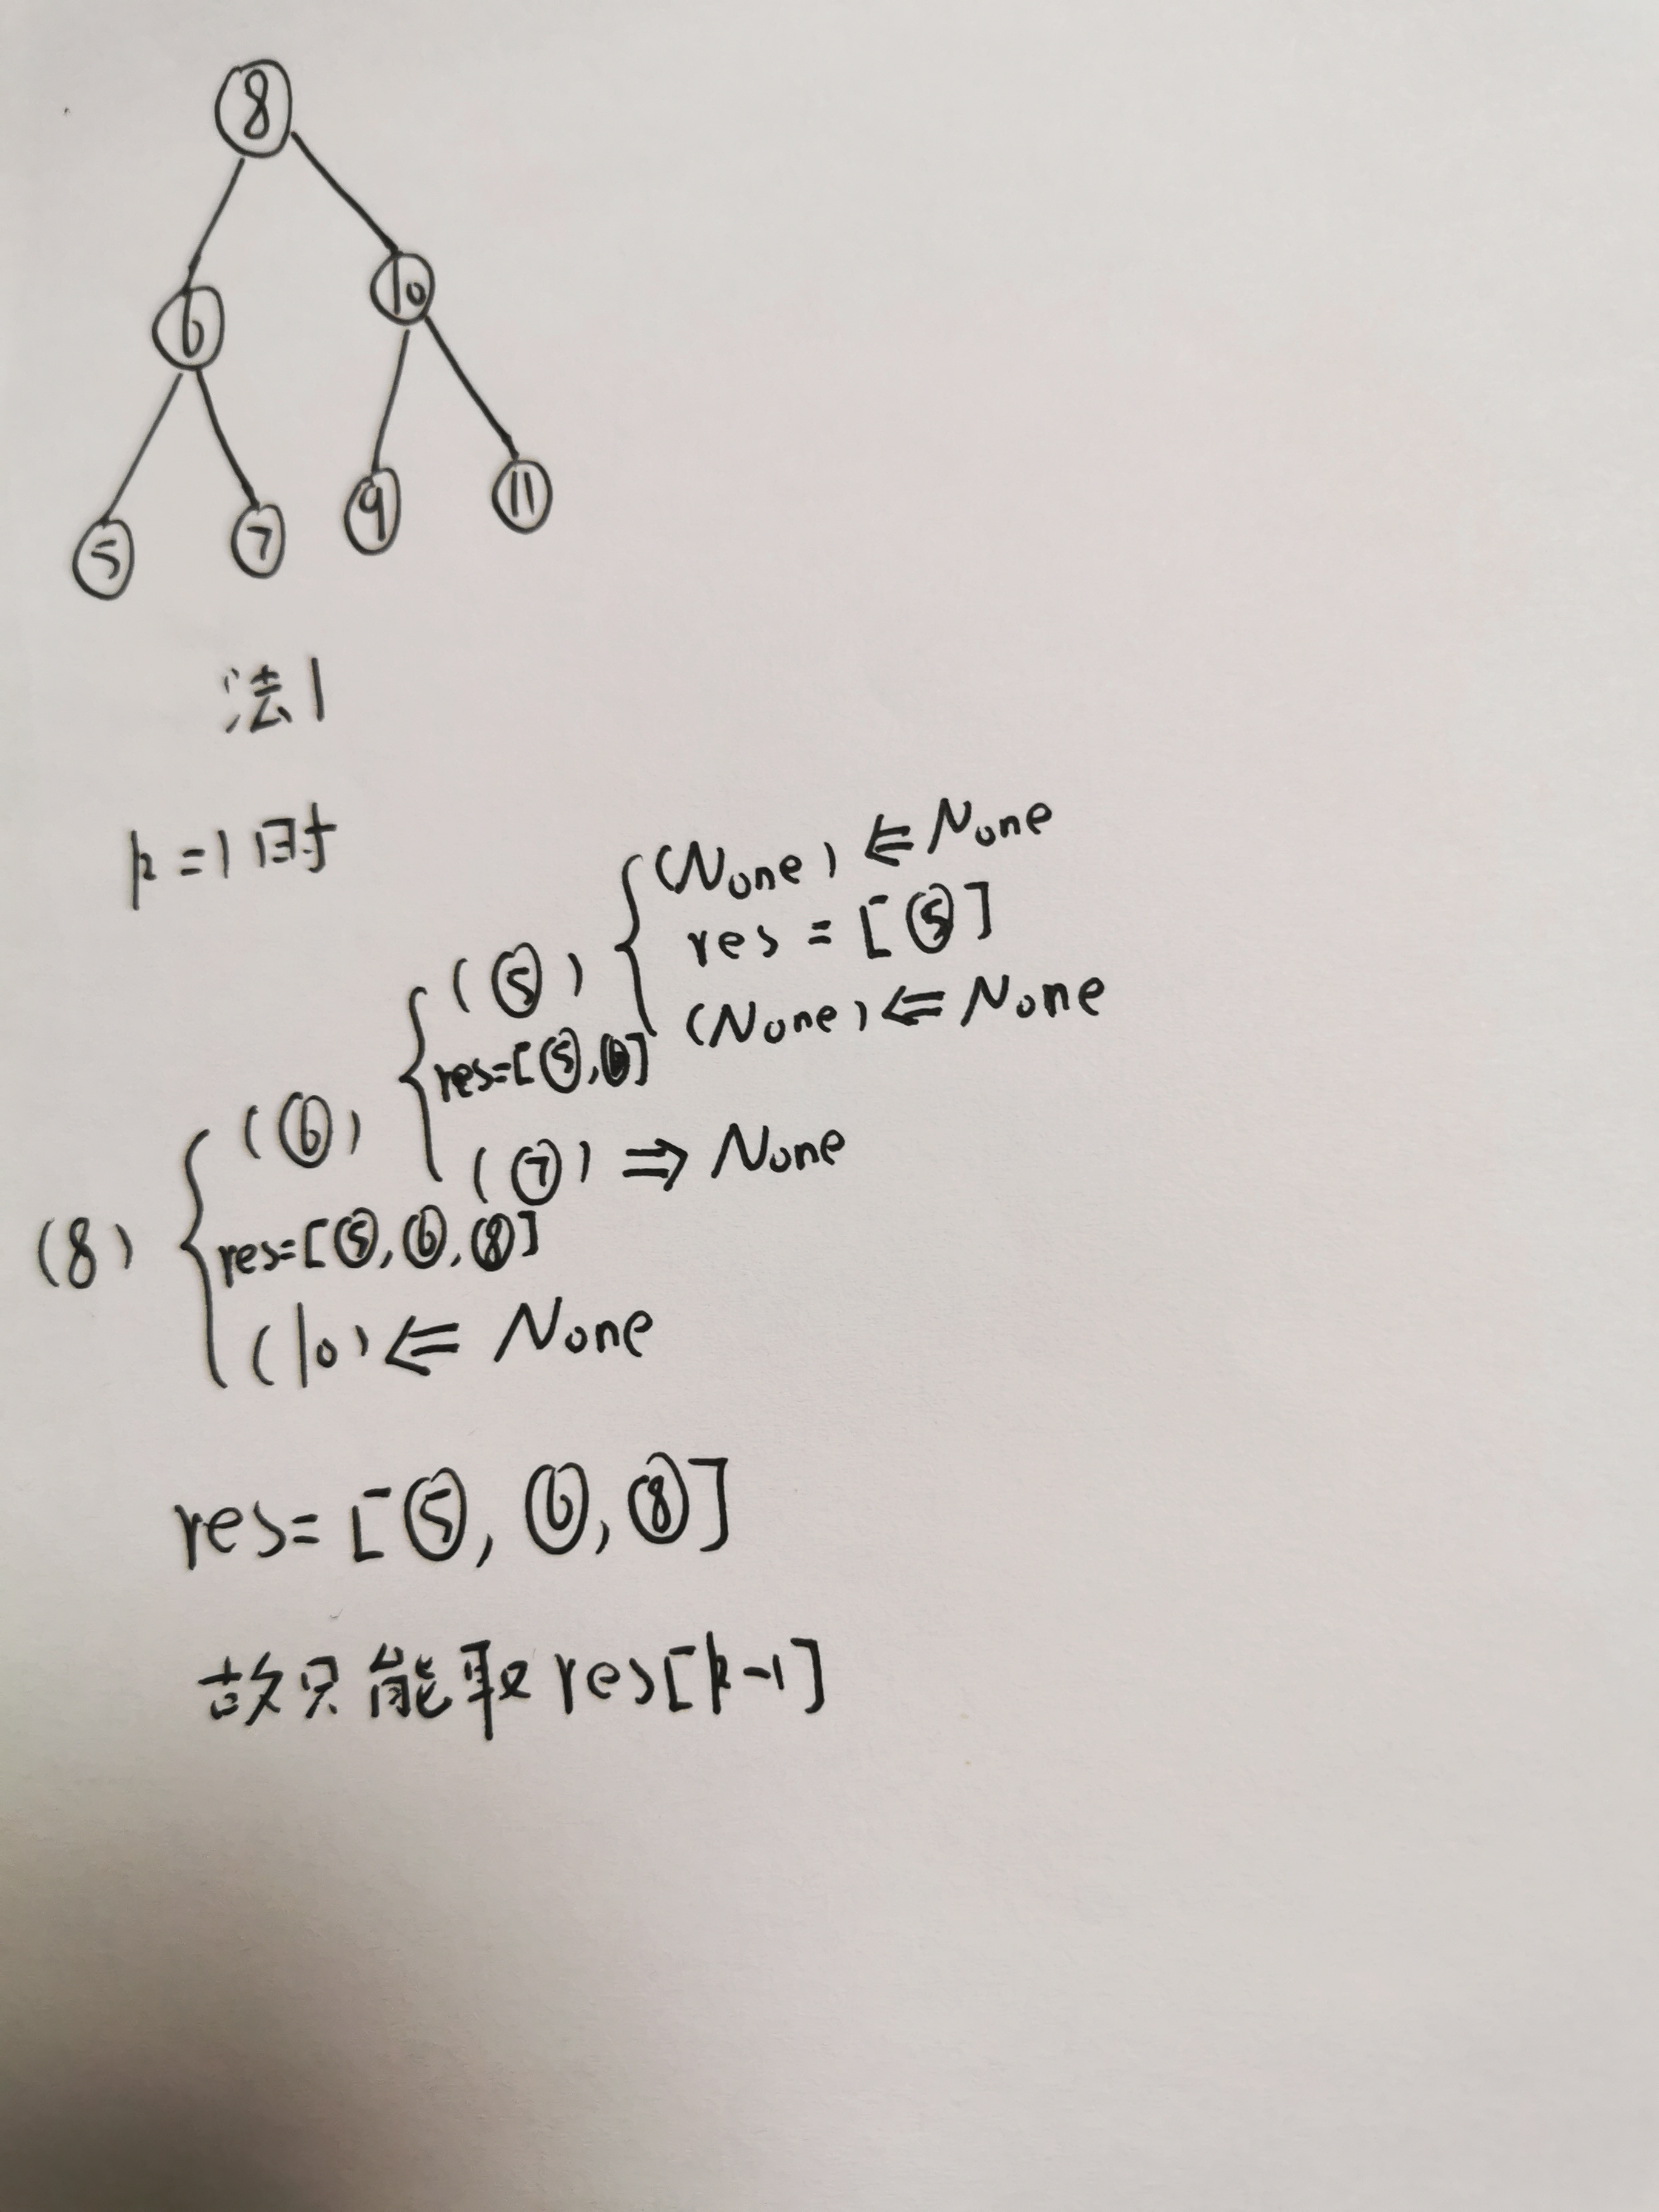 8
6 10
5 7 9 11
法1
k=1时
(None) ⇐ None
(5) res = [5]
(None) ⇐ None
res=[5,6]
(6)
(7) ⇒ None
(8) res=[5,6,8]
(10) ⇐ None
res=[5,6,8]
故只能取res[k-1]